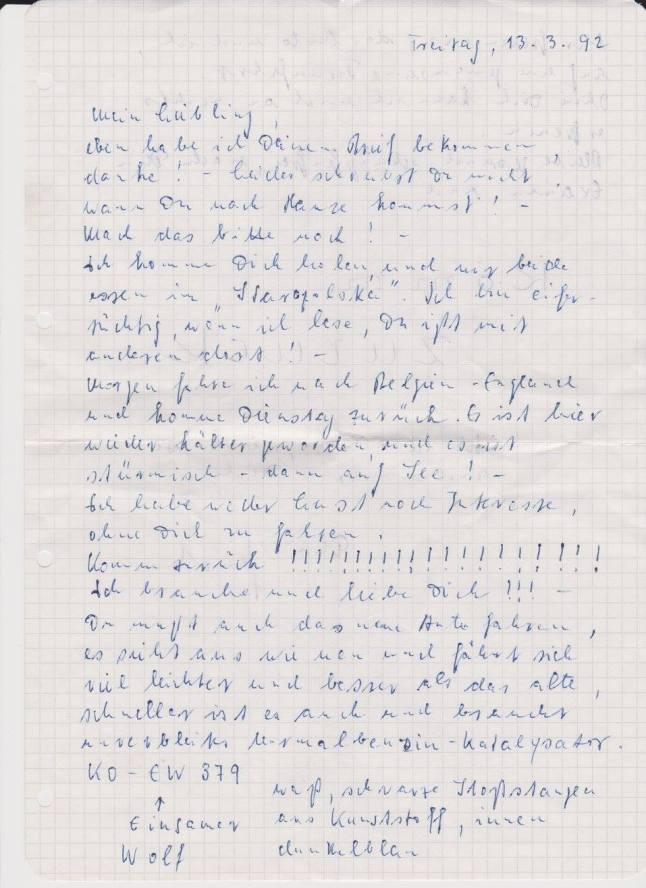 Freitag, 13.3.92
Mein Liebling,
eben habe ich Deinen Brief bekommen
danke! - Leider schreibst Du nicht
wann Du nach Hause kommst! -
Mach das bitte noch! -
Ich komme Dich holen, und wir beide
essen im „Staropolska“. Ich bin eifer-
süchtig, wenn ich lese, Du ißt mit
anderen dort! -
Morgen fahre ich nach Belgien - England
und komme Dienstag zurück. Es ist hier
wieder kälter geworden, und es ist
stürmisch - dann auf See! -
Ich habe weder Lust noch Interesse,
ohne Dich zu fahren.
Komm zurück !!!!!!!!!!!!!!!!!!!!
Ich brauche und liebe Dich!!! -
Du mußt auch das neue Auto fahren,
es sieht aus wie neu und fährt sich
viel leichter und besser als das alte,
schneller ist es auch und braucht
unverbleites Normalbenzin - Katalysator.
KO - EW 379
weiß, schwarze Stoßstangen
↑
Einsamer
aus Kunststoff, innen
Wolf
dunkelblau